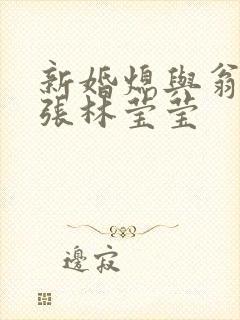 新婚媳與翁
張林莹莹
邊寂